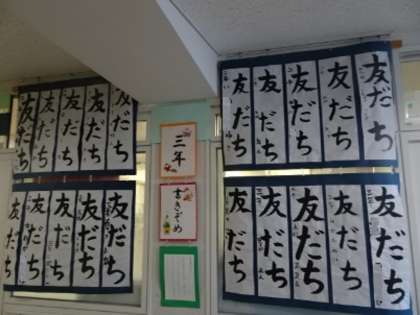 友だち
友だち
友だち
友だち
友だち
友だち
友だち
友だち
友だち
友だち
三年
書きぞめ
友だち
友だち
友だち
友だち
友だち
友だち
友だち
友だち
友だち
友だち